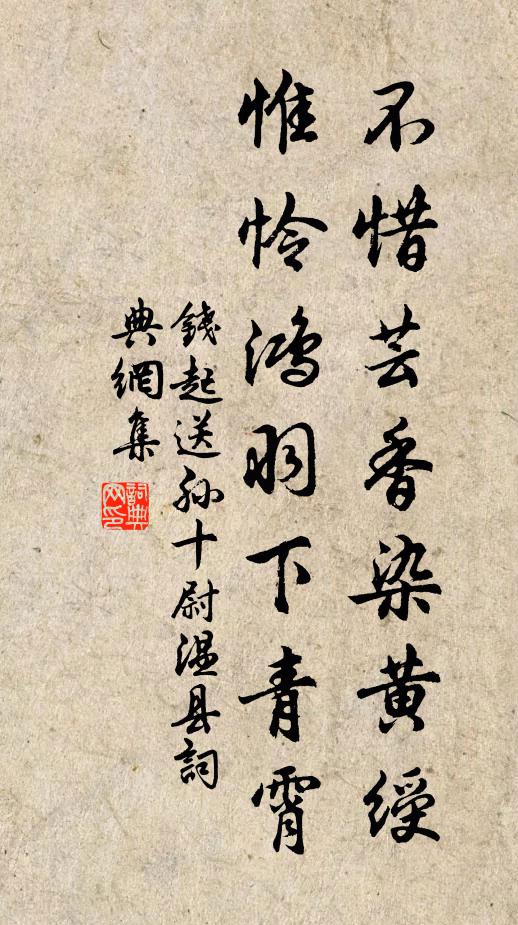 不惜芸香染黄綬
惟怜鴻羽下青霄
錢起送孫十尉温县詞
典網集
詞典
网印